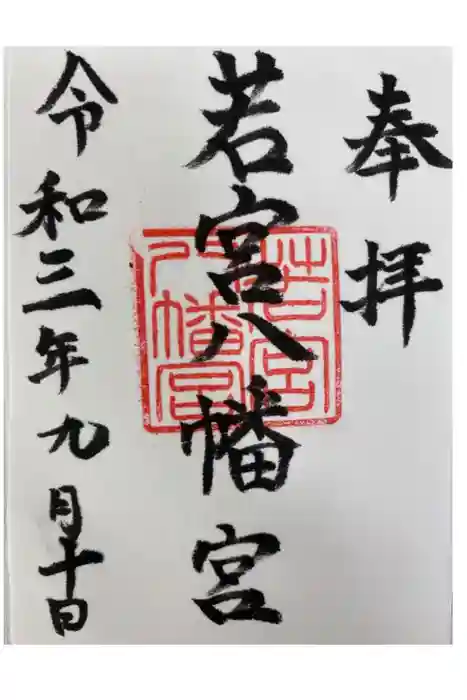 奉拝
若宮八幡宮
若宮
八幡宮
令和三年九月十日